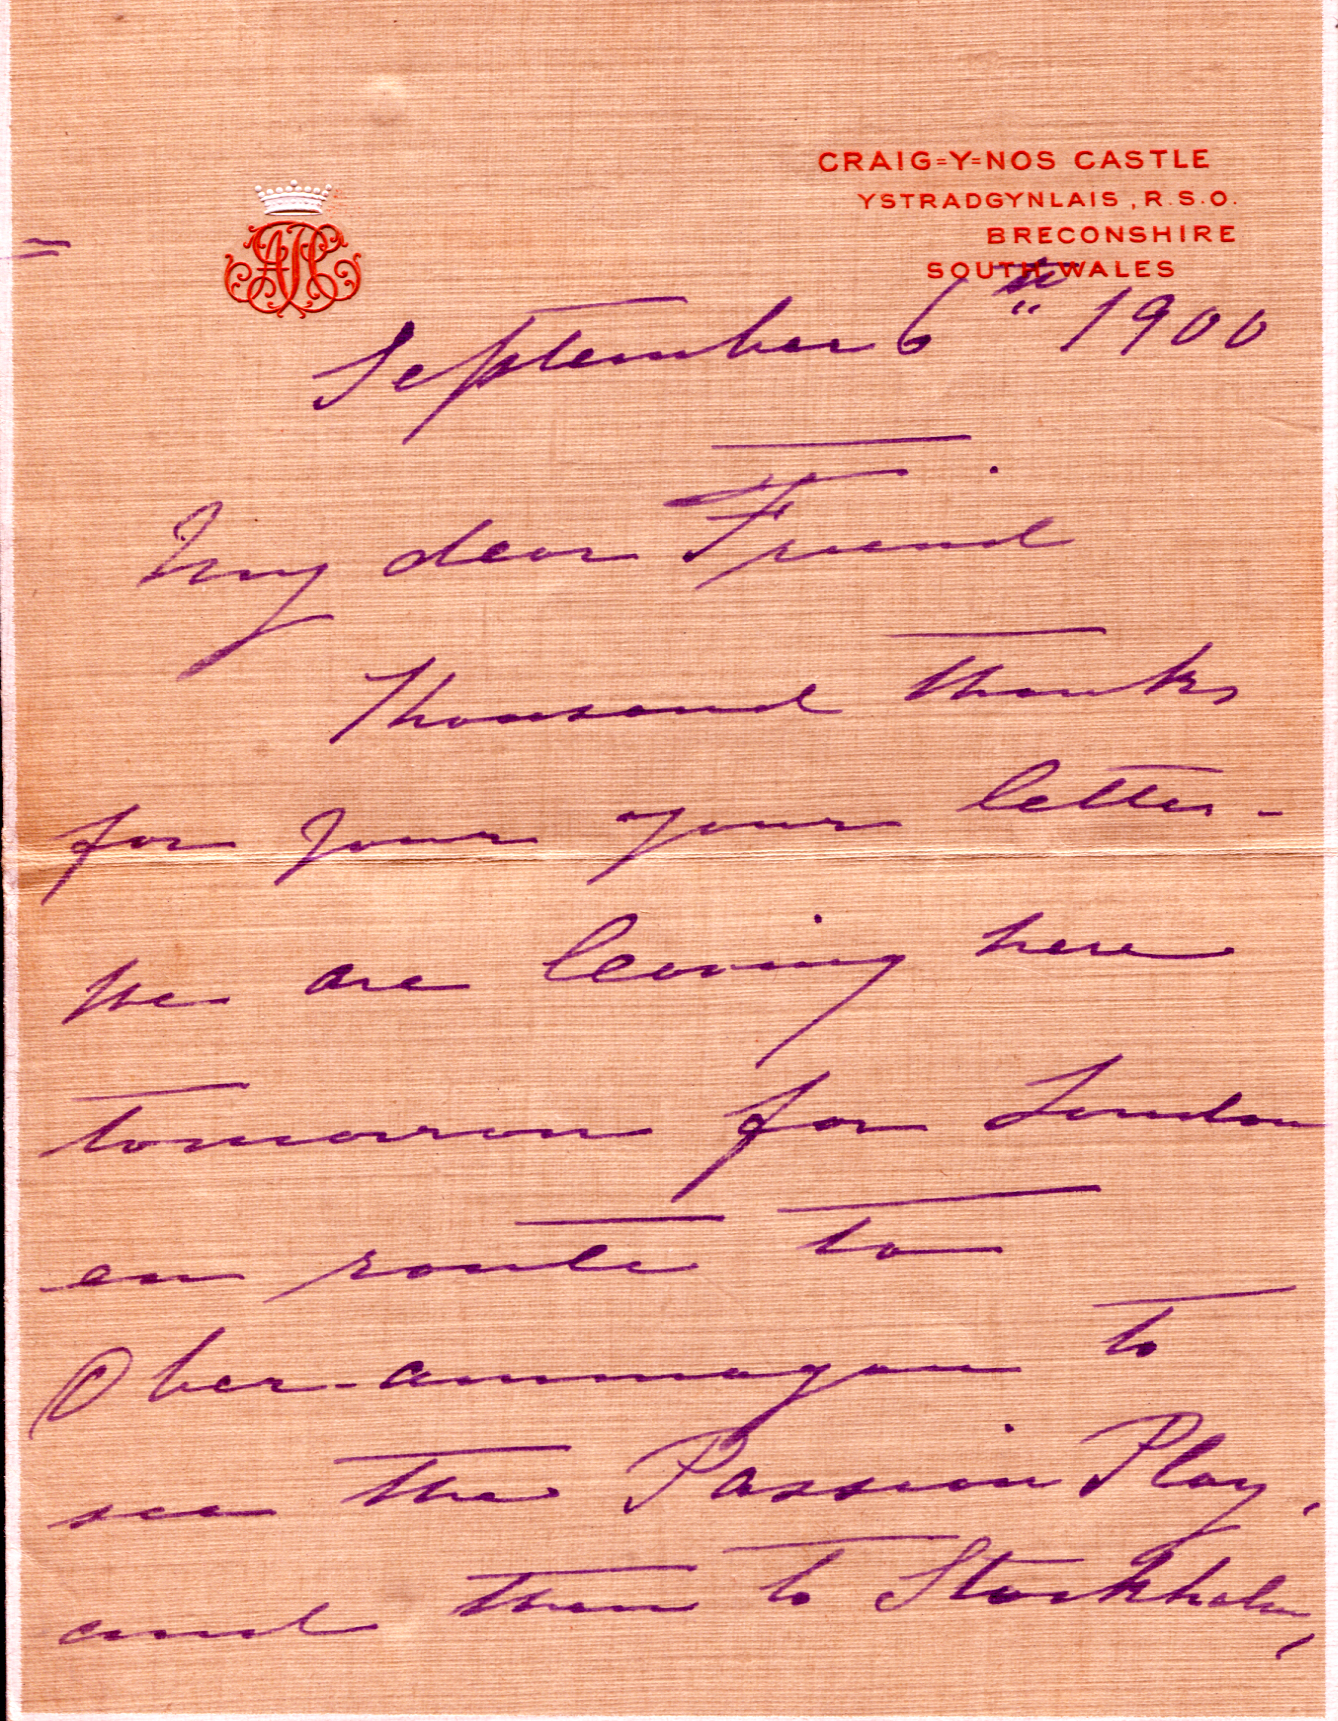 CRAIG=Y=NOS CASTLE
YSTRADGYNLAIS, R.S.O.
BRECONSHIRE
SOUTH WALES
September 6th 1900
My dear Friend
Thousand thanks
for your your letter -
We are leaving here
tomorrow for London
en route to
Ober-ammagau to
see the Passion Play,
and then to Stockholm,